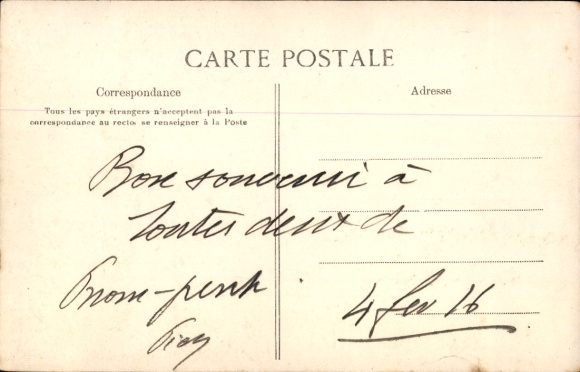 CARTE POSTALE
Correspondance
Tous les pays étrangers n'acceptent pas la
correspondance au recto: se renseigner à la Poste
Adresse
Bon souvenir à
toutes deux de
Pnom-penh
4 fev 16